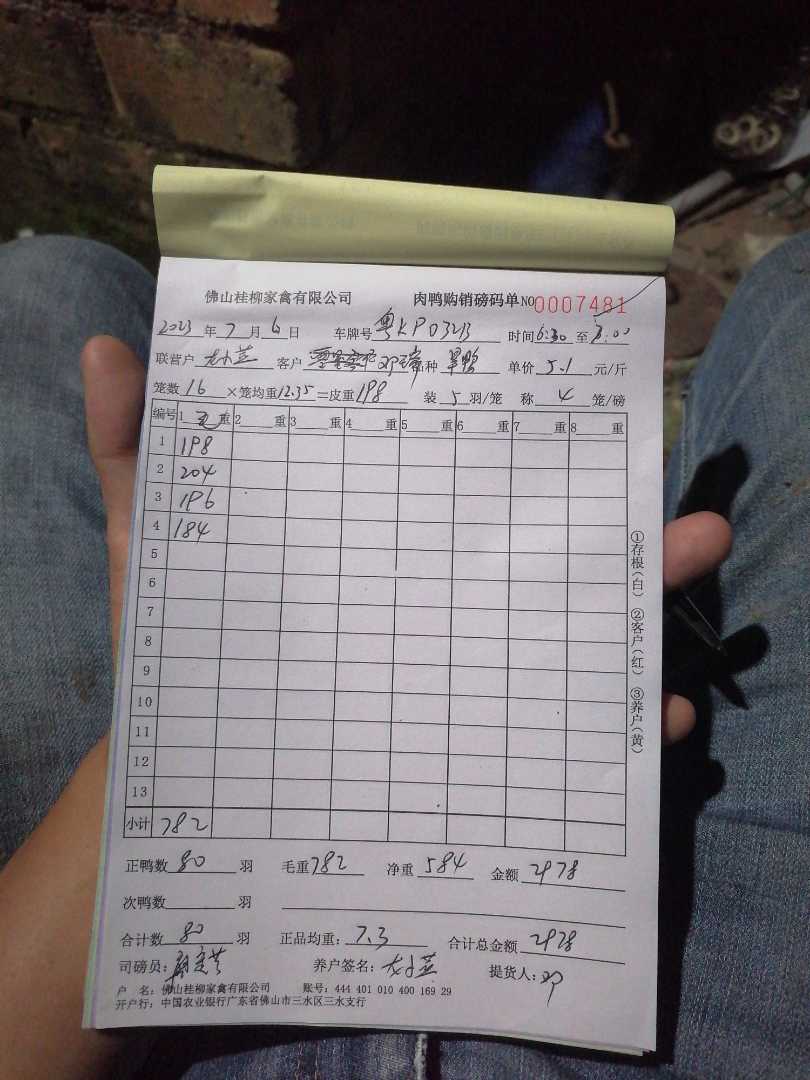 佛山桂柳家禽有限公司 肉鸭购销磅码单 NO 0007481
2023 年 7 月 6 日 车牌号 粤KP032B 时间 6:30 至 7:00
联营户 客户 邓 种 单价 5.1 元/斤
笼数 16 ×笼均重 12.35 =皮重 198 装 5 羽/笼 称 4 笼/磅
编号 1 毛 重 2 重 3 重 4 重 5 重 6 重 7 重 8 重
1 198
2 204
3 196
4 184
5
6
7
8
9
10
11
12
13
小计 782
正鸭数 80 羽 毛重 782 净重 584 金额 2978
次鸭数 羽
合计数 80 羽 正品均重: 7.3 合计总金额 2978
司磅员: 养户签名: 提货人: 邓
户 名: 佛山桂柳家禽有限公司 账号: 444 401 010 400 169 29
开户行: 中国农业银行广东省佛山市三水区三水支行
①存根(白) ②客户(红) ③养户(黄)